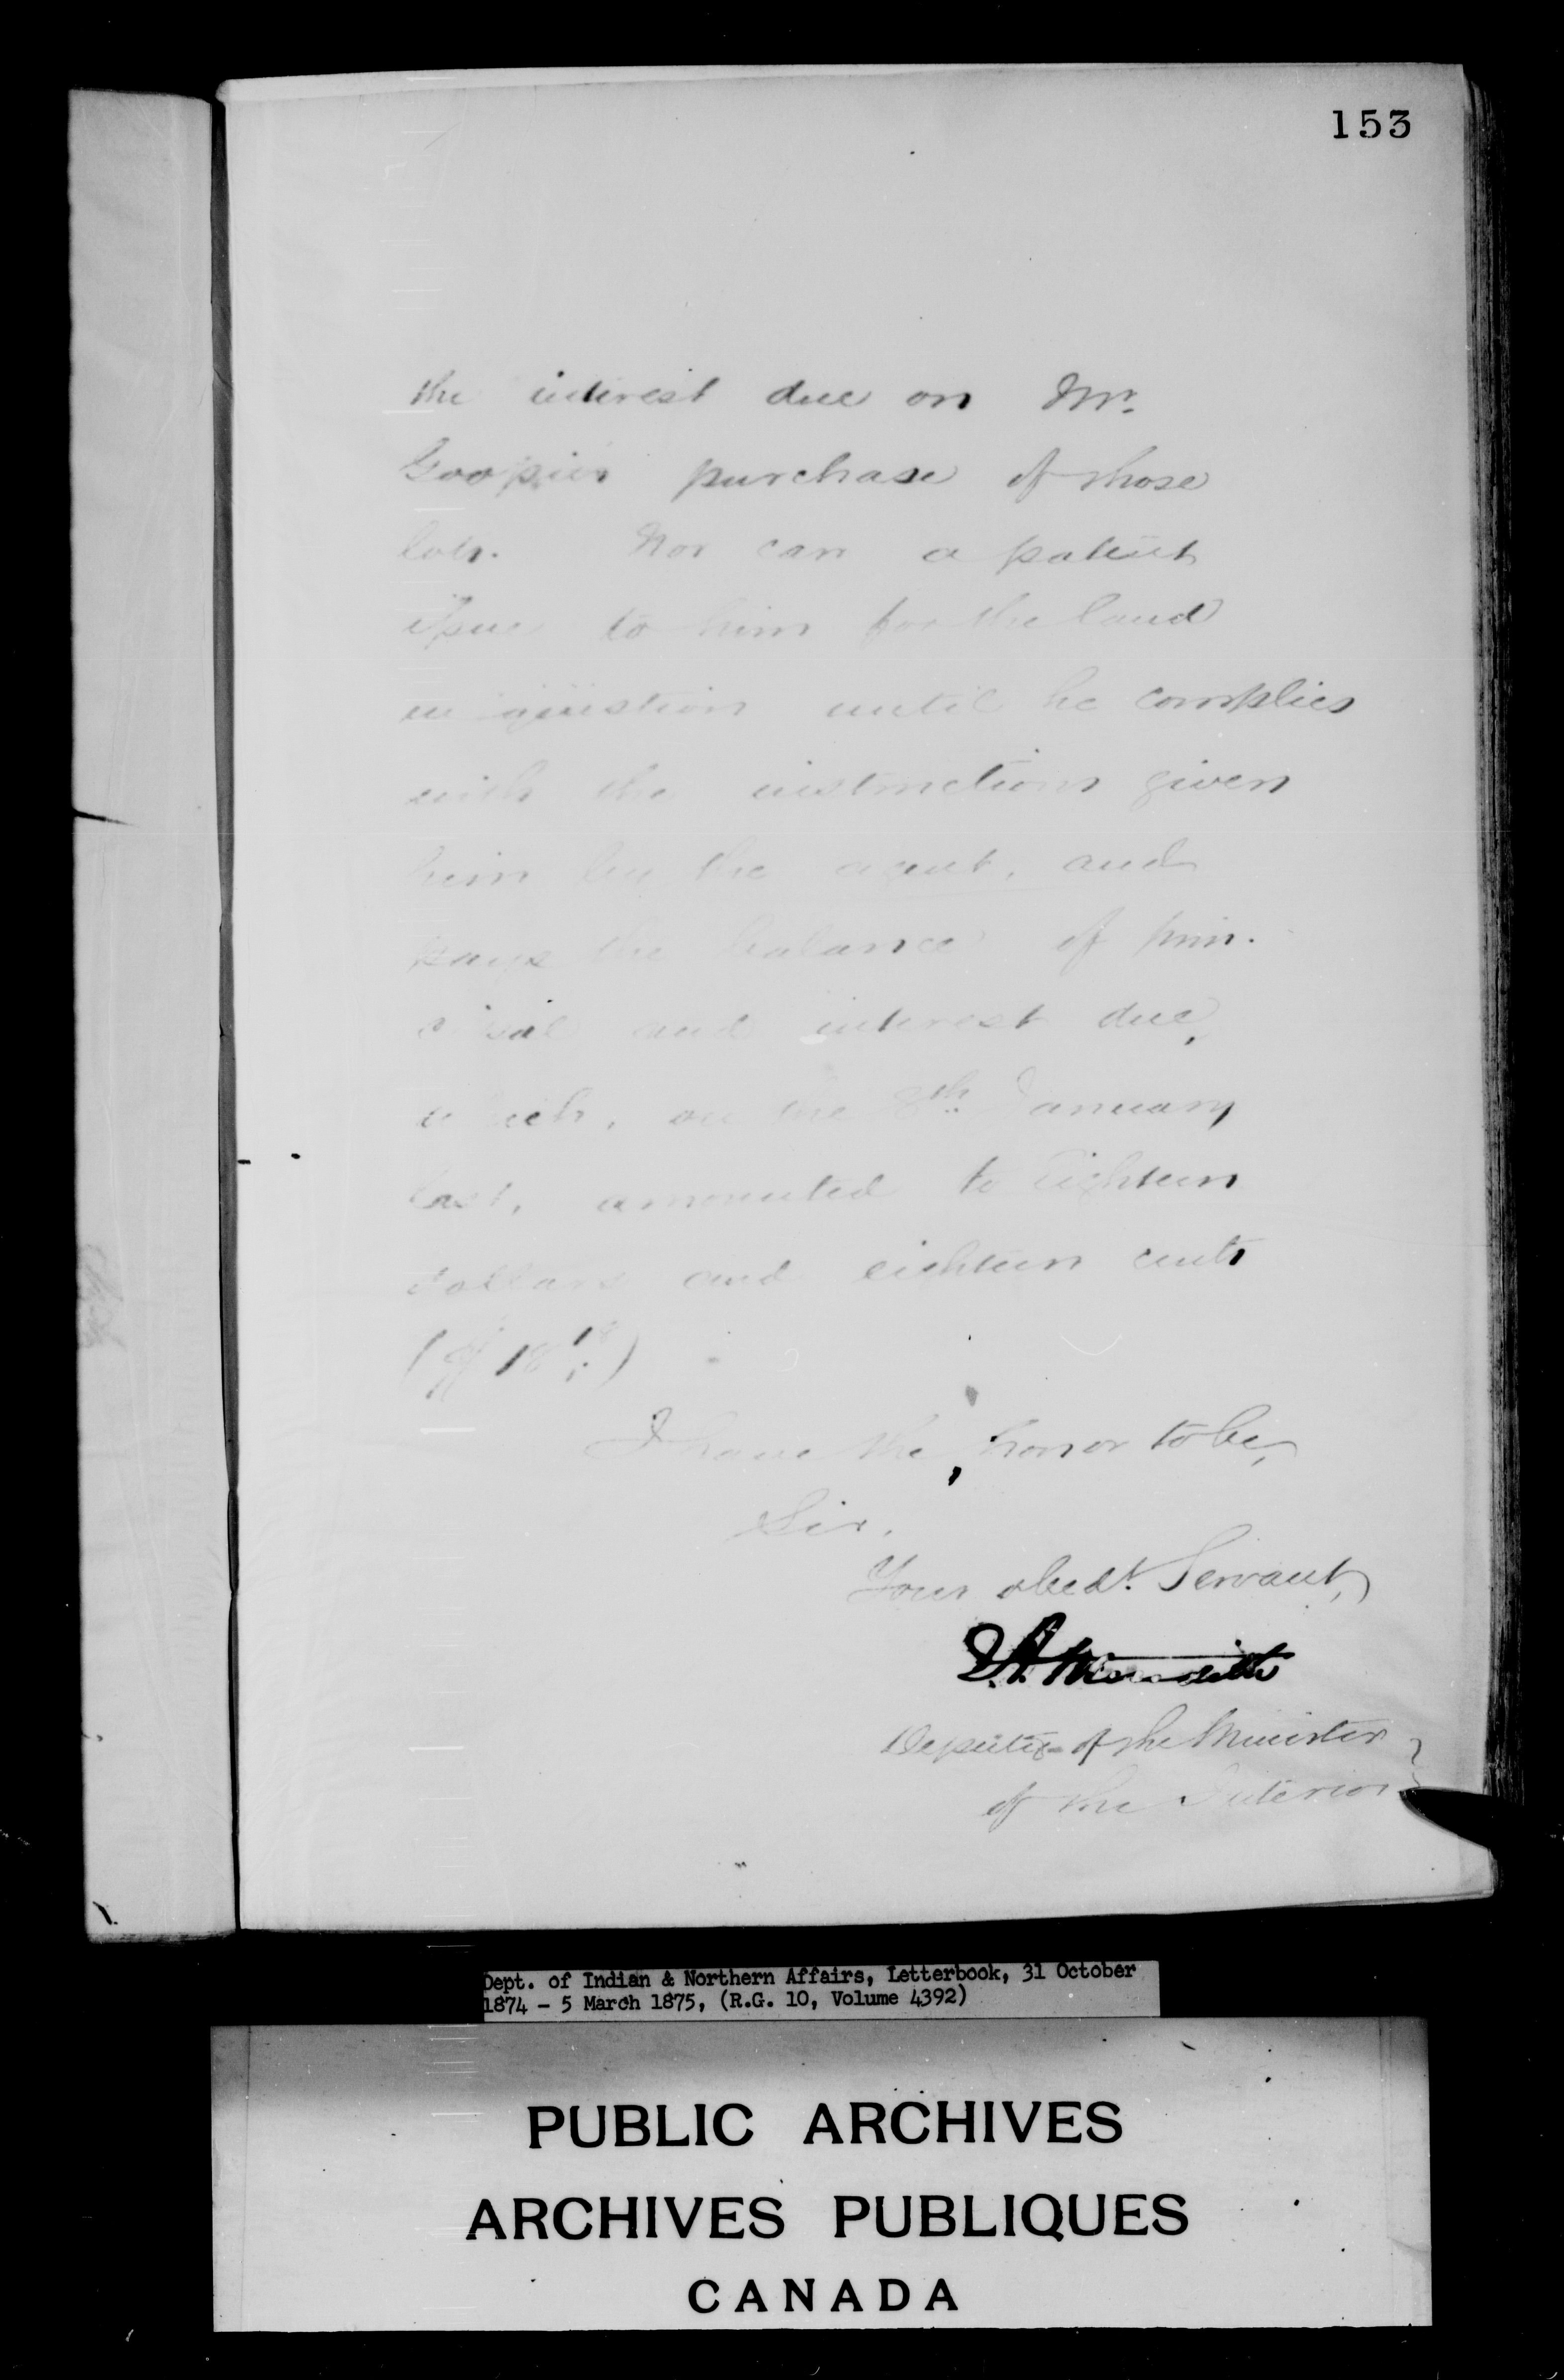 153
the interest due on Mr.
purchase of those
lots. Nor can a patent
issue to him for the land
in question until he complies
with the instructions given
him by the agent, and
pays the balance of prin-
cipal and interest due,
which, on the 8th January
last, amounted to Eighteen
dollars and eighteen cents
($18 18)
I have the honor to be,
Sir,
Your obedt. Servant,
E.A. Meredith
Deputy of the Minister
of the Interior
Dept. of Indian & Northern Affairs, Letterbook, 31 October
1874 - 5 March 1875, (R.G. 10, Volume 4392)
PUBLIC ARCHIVES
ARCHIVES PUBLIQUES
CANADA